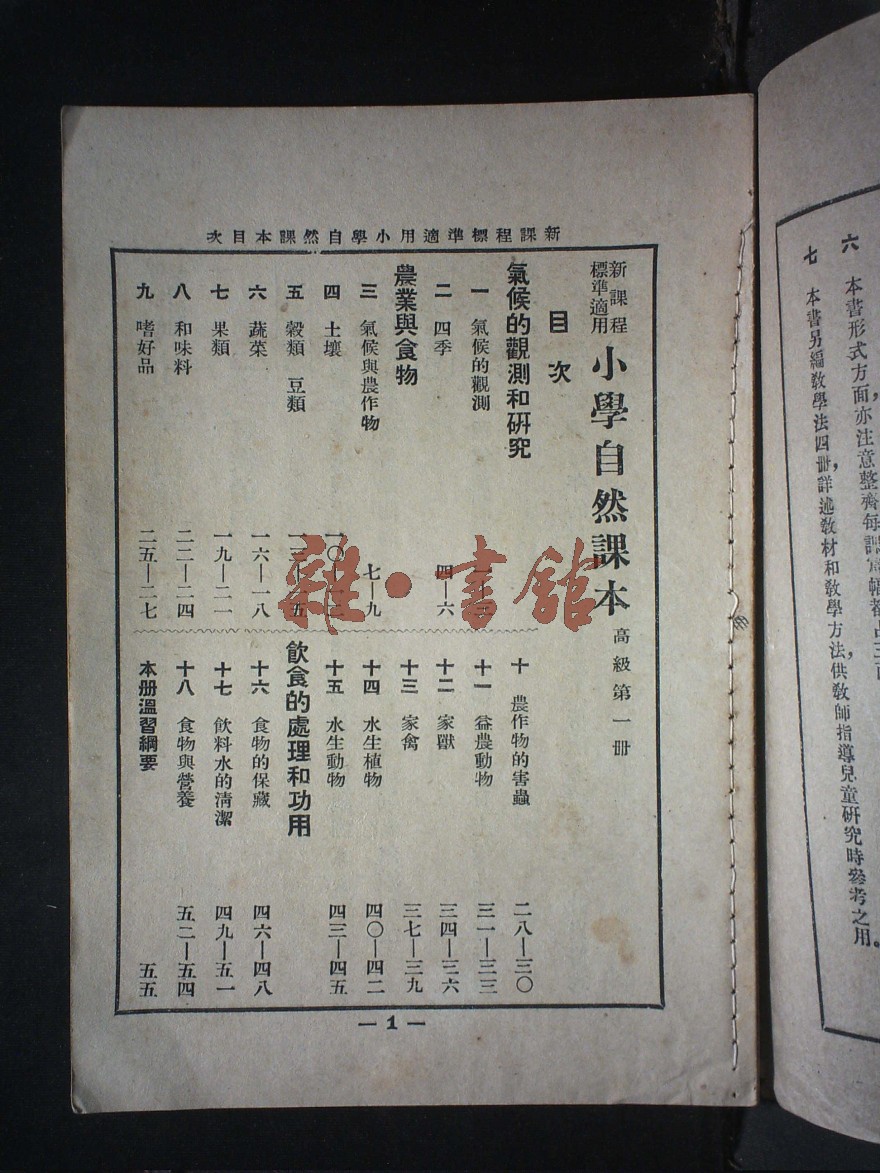 新課程標準適用小學自然課本目次
新課程
標準適用
小學自然課本 高級第一冊
目次
氣候的觀測和研究
一 氣候的觀測
二 四季 四—六
農業與食物
三 氣候與農作物 七—九
四 土壤 一〇—一二
五 穀類 豆類 一三—一五
六 蔬菜 一六—一八
七 果類 一九—二一
八 和味料 二二—二四
九 嗜好品 二五—二七
十 農作物的害蟲 二八—三〇
十一 益農動物 三一—三三
十二 家獸 三四—三六
十三 家禽 三七—三九
十四 水生植物 四〇—四二
十五 水生動物 四三—四五
飲食的處理和功用
十六 食物的保藏 四六—四八
十七 飲料水的清潔 四九—五一
十八 食物與營養 五二—五四
本冊溫習綱要 五五
— 1 —
雜·書館
六 本書形式方面,亦注意整齊每課
七 本書另編教學法四冊,詳述教材和教學方法,供教師指導兒童研究時參考之用。